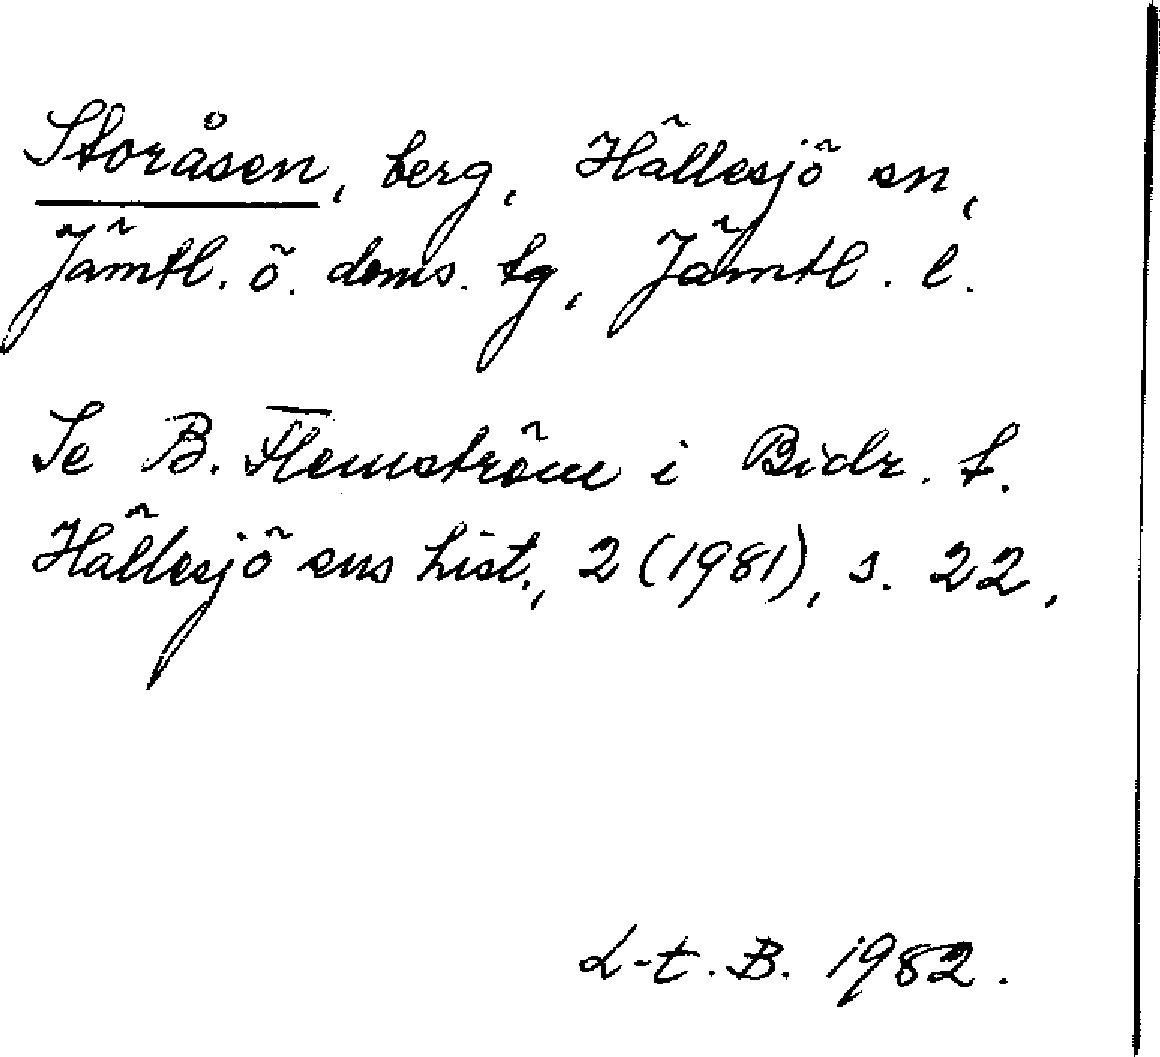 Storåsen, berg, Hällesjö sn,
Jämtl. ö. doms. tg, Jämtl. l.
Se B. Flemström i Bidr. t.
Hällesjö sns hist., 2 (1981), s. 22,
L-t. B. 1982.